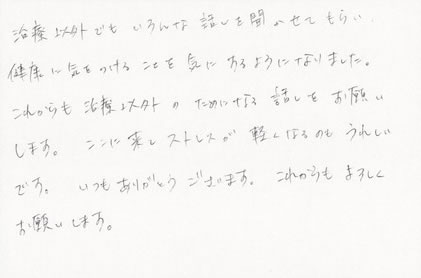 治療以外でもいろんな話しを聞かせてもらい、
健康に気をつけることを気にするようになりました。
これからも治療以外のためになる話しをお願い
します。 ここに来しストレスが軽くなるのもうれしい
です。 いつもありがとうございます。 これからもよろしく
お願いします。